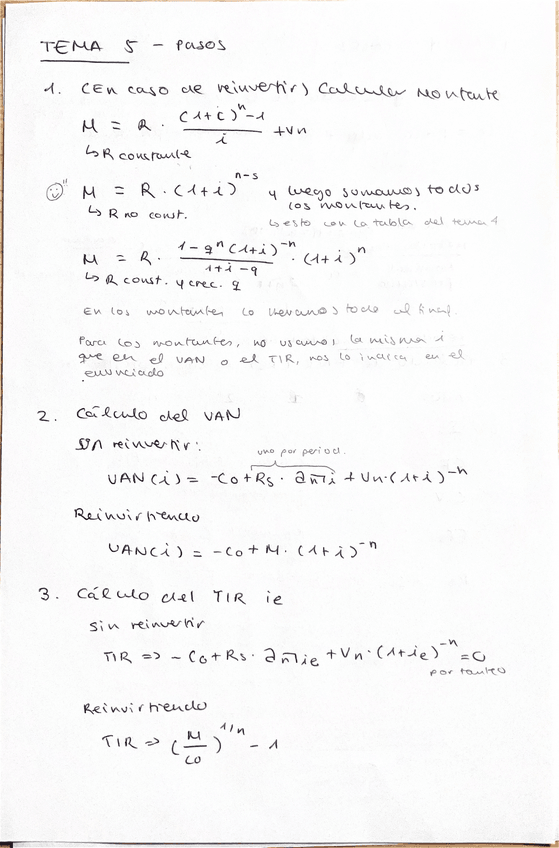 TEMA 5 - Pasos
1. (En caso de reinvertir) Calcular Montante
M = R · ((1+i)^n - 1)/i + Vn
↳ R constante
M = R · (1+i)^(n-s) y luego sumamos todos los montantes.
↳ R no const.
↳ esto con la tabla del tema 4
M = R · (1 - q^n (1+i)^-n)/(1+i-q) · (1+i)^n
↳ R const. y crec. q
En los montantes lo llevamos todo al final.
Para los montantes, no usamos la misma i
que en el VAN o el TIR, nos lo indica en el
enunciado
2. Cálculo del VAN
Sin reinvertir:
uno por period.
VAN(i) = -Co + Rs · an¬i + Vn · (1+i)^-n
Reinvirtiendo
VAN(i) = -Co + M · (1+i)^-n
3. Cálculo del TIR ie
sin reinvertir
TIR => - Co + Rs · an¬ie + Vn · (1+ie)^-n = 0
por tanteo
Reinvirtiendo
TIR => (M/Co)^(1/n) - 1